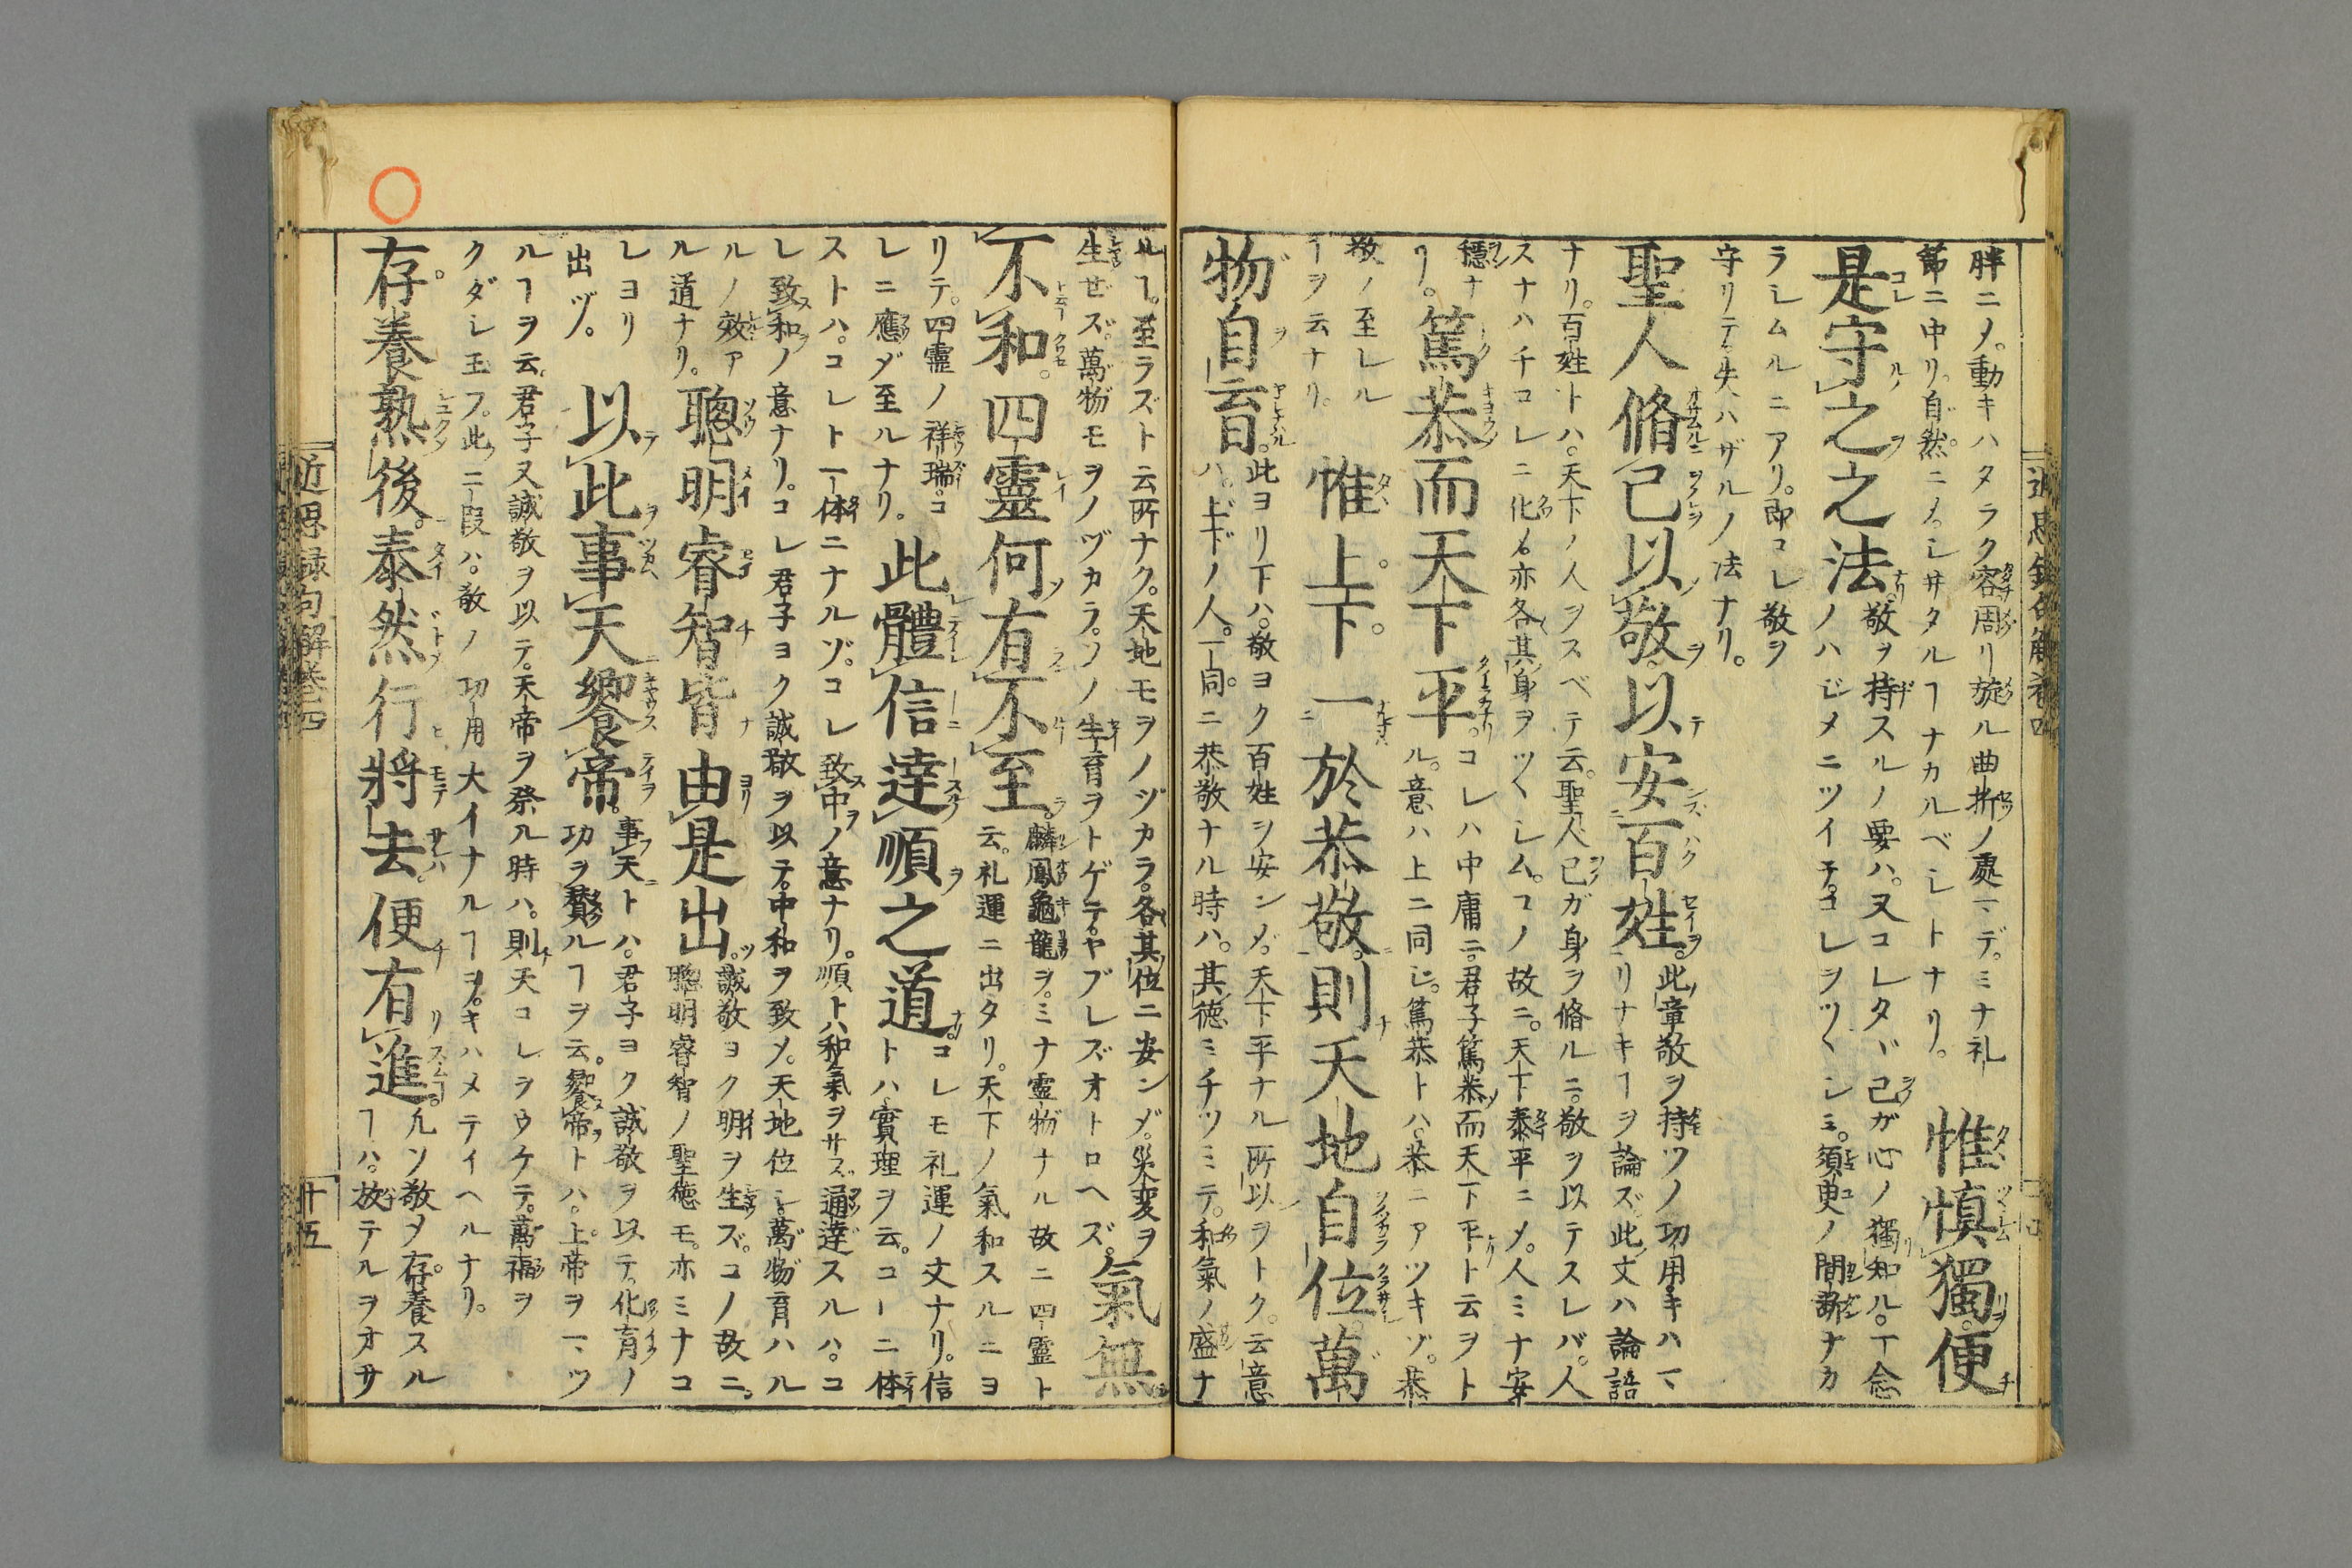 胖ニメ。動キハタラク容周リ旋ル曲折ノ處マデ。ミナ礼
節ニ中リ。自然ニメ。シヰタルヿナカルベシトナリ。
惟慎獨。便
是守之之法。
敬ヲ持スルノ要ハ。又コレタヾ己ガ心ノ獨知ル。一念
ノハジメニツイテ。コレヲツヽシミ。須臾ノ間斷ナカ
ラシムルニアリ。即コレ敬ヲ
守リテ失ハザルノ法ナリ。
聖人脩己以敬。以安百姓。
此章敬ヲ持ツノ功用キハマ
リナキヿヲ論ズ此文ハ論語
ナリ。百姓トハ。天下ノ人ヲスベテ云。聖人己ガ身ヲ脩ルニ。敬ヲ以テスレバ。人
スナハチコレニ化メ亦各其身ヲツヽシム。コノ故ニ。天下泰平ニメ。人ミナ安
穩ナ
リ。
篤恭而天下平。
コレハ中庸ニ。君子篤恭而天下平ト云ヲト
ル。意ハ上ニ同ジ。篤恭トハ。恭ニアツキゾ。恭
敬ノ至レル
ヿヲ云ナリ。
惟上下一於恭敬。則天地自位。萬
物自育。
此ヨリ下ハ。敬ヨク百姓ヲ安ンメ。天下平ナル所以ヲトク。云意
ハ。上下ノ人。一同ニ恭敬ナル時ハ。其徳ミチツミテ。和氣ノ盛ナ
ルヿ。至ラズト云所ナク。天地モヲノヅカラ。各其位ニ安ンメ。災変ヲ
生ゼズ。萬物モヲノヅカラ。ソノ生育ヲトゲテ。ヤブレズオトロヘズ。
氣無
不和。四靈何有不至。
麟鳳龜龍ヲ。ミナ霊物ナル故ニ四霊ト
云。礼運ニ出タリ。天下ノ氣和スルニヨ
リテ。四霊ノ祥瑞。コ
レニ應ゾ至ルナリ。
此體信達順之道。
コレモ礼運ノ文ナリ。信
トハ實理ヲ云。コヽニ体
ストハ。コレト一体ニナルゾ。コレ致中ノ意ナリ。順トハ和氣ヲサス。通達スルハ。コ
レ致和ノ意ナリ。コレ君子ヨク誠敬ヲ以テ。中和ヲ致メ。天地位シ。萬物育ハル
ルノ效ア
ル道ナリ。
聰明睿智皆由是出。
誠敬ヨク明ヲ生ズ。コノ故ニ。
聰明睿智ノ聖徳モ。亦ミナコ
レヨリ
出ヅ。
以此事天饗帝。
事天トハ。君子ヨク誠敬ヲ以テ。化育ノ
功ヲ贊ルヿヲ云。饗帝トハ。上帝ヲマツ
ルヿヲ云。君子又誠敬ヲ以テ。天帝ヲ祭ル時ハ。則天コレヲウケテ。萬福ヲ
クダシ玉フ。此ニ段ハ。敬ノ功用大イナルヿヲ。キハメテイヘルナリ。
存養熟後。泰然行將去。便有進。
凡ソ敬メ存養スル
ヿハ。放テルヲオサ
近思録句解巻四
十五